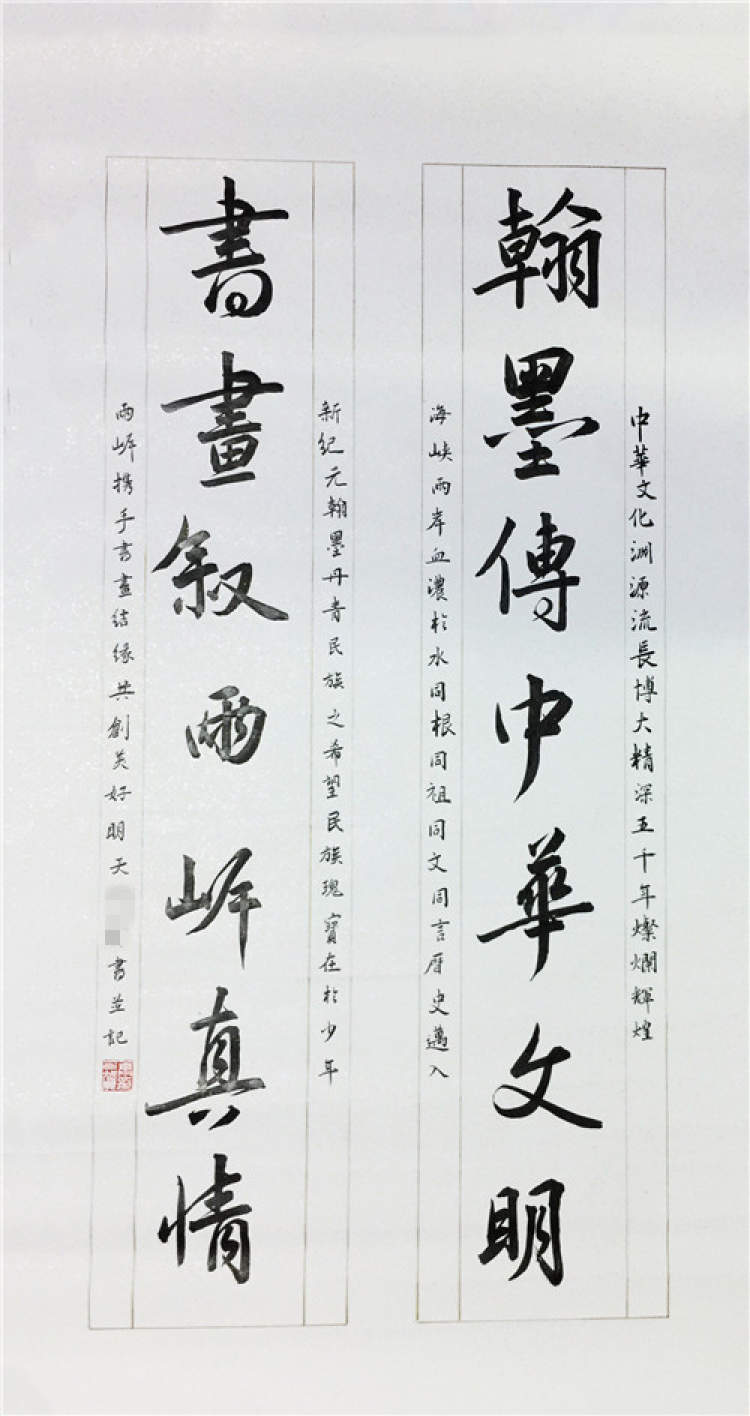 中華文化淵源流長博大精深五千年燦爛輝煌
翰墨傳中華文明
海峽兩岸血濃於水同根同祖同文同言历史邁入
新纪元翰墨丹青民族之希望民族瑰寶在於少年
書畫叙兩岸真情
兩岸携手書畫结缘共創美好明天
書並記